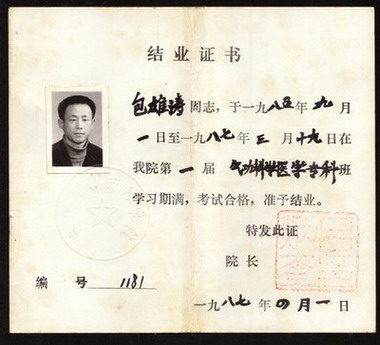 结业证书
包雄涛同志，于一九八五年九月
一日至一九八七年三月十九日在
我院第一届气功科学医学专科班
学习期满，考试合格，准予结业。
特发此证
院长
编号 1181
一九八七年四月一日